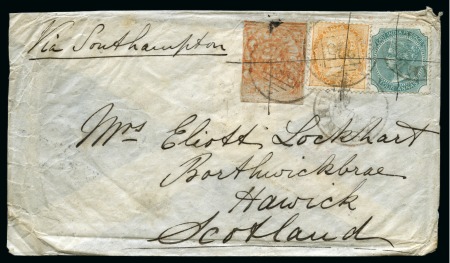 Via Southampton
Mrs Eliott Lockhart
Borthwickbrae
Hawick
Scotland